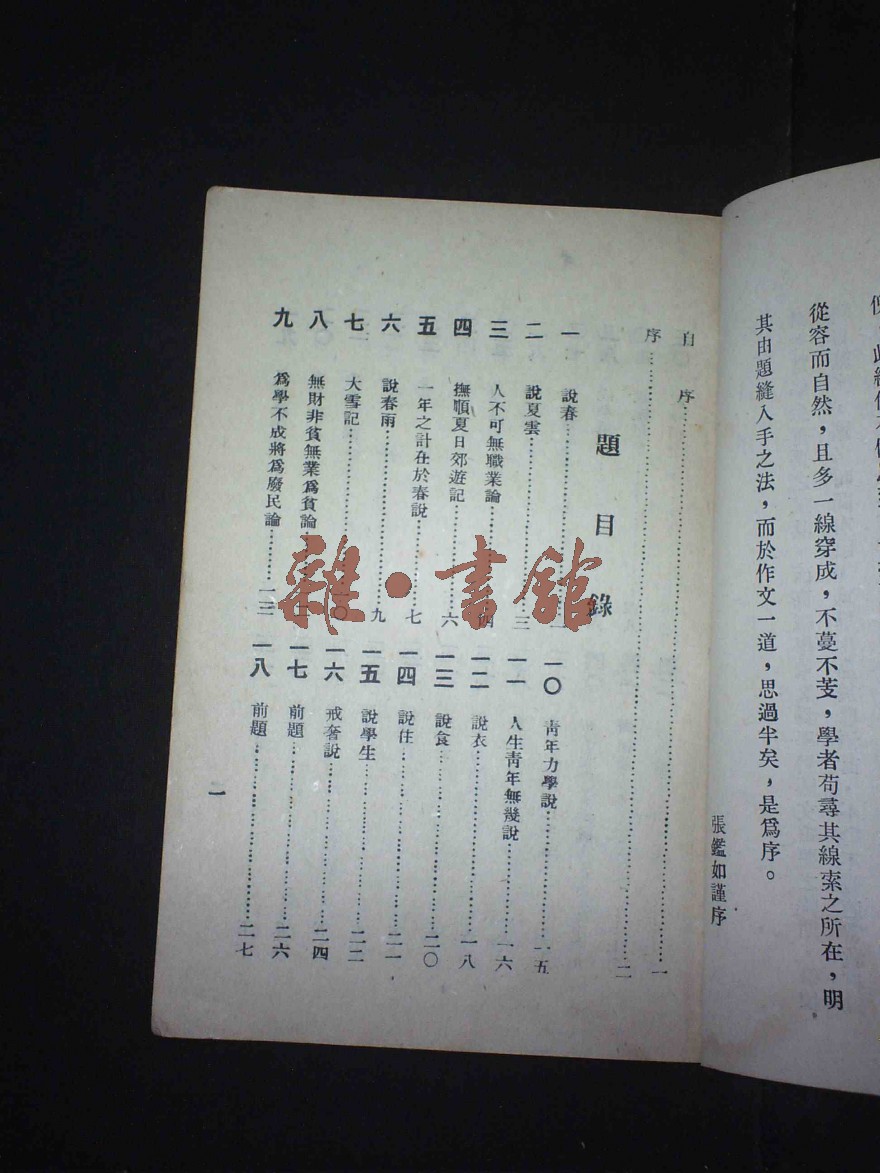 從容而自然，且多一線穿成，不蔓不芰，學者苟尋其線索之所在，明
其由題縫入手之法，而於作文一道，思過半矣，是爲序。
張鑑如謹序
自序……一
序……二
題目錄
一 說春……
二 說夏雲……三
三 人不可無職業論……四
四 撫順夏日郊遊記……六
五 一年之計在於春說……七
六 說春雨……九
七 大雪記……一〇
八 無財非貧無業爲貧論……
九 爲學不成將爲廢民論……一三
一〇 靑年力學說……一五
一一 人生靑年無幾說……一六
一二 說衣……一八
一三 說食……二〇
一四 說住……二一
一五 說學生……二二
一六 戒奢說……二四
一七 前題……二六
一八 前題……二七
二
雜·書館